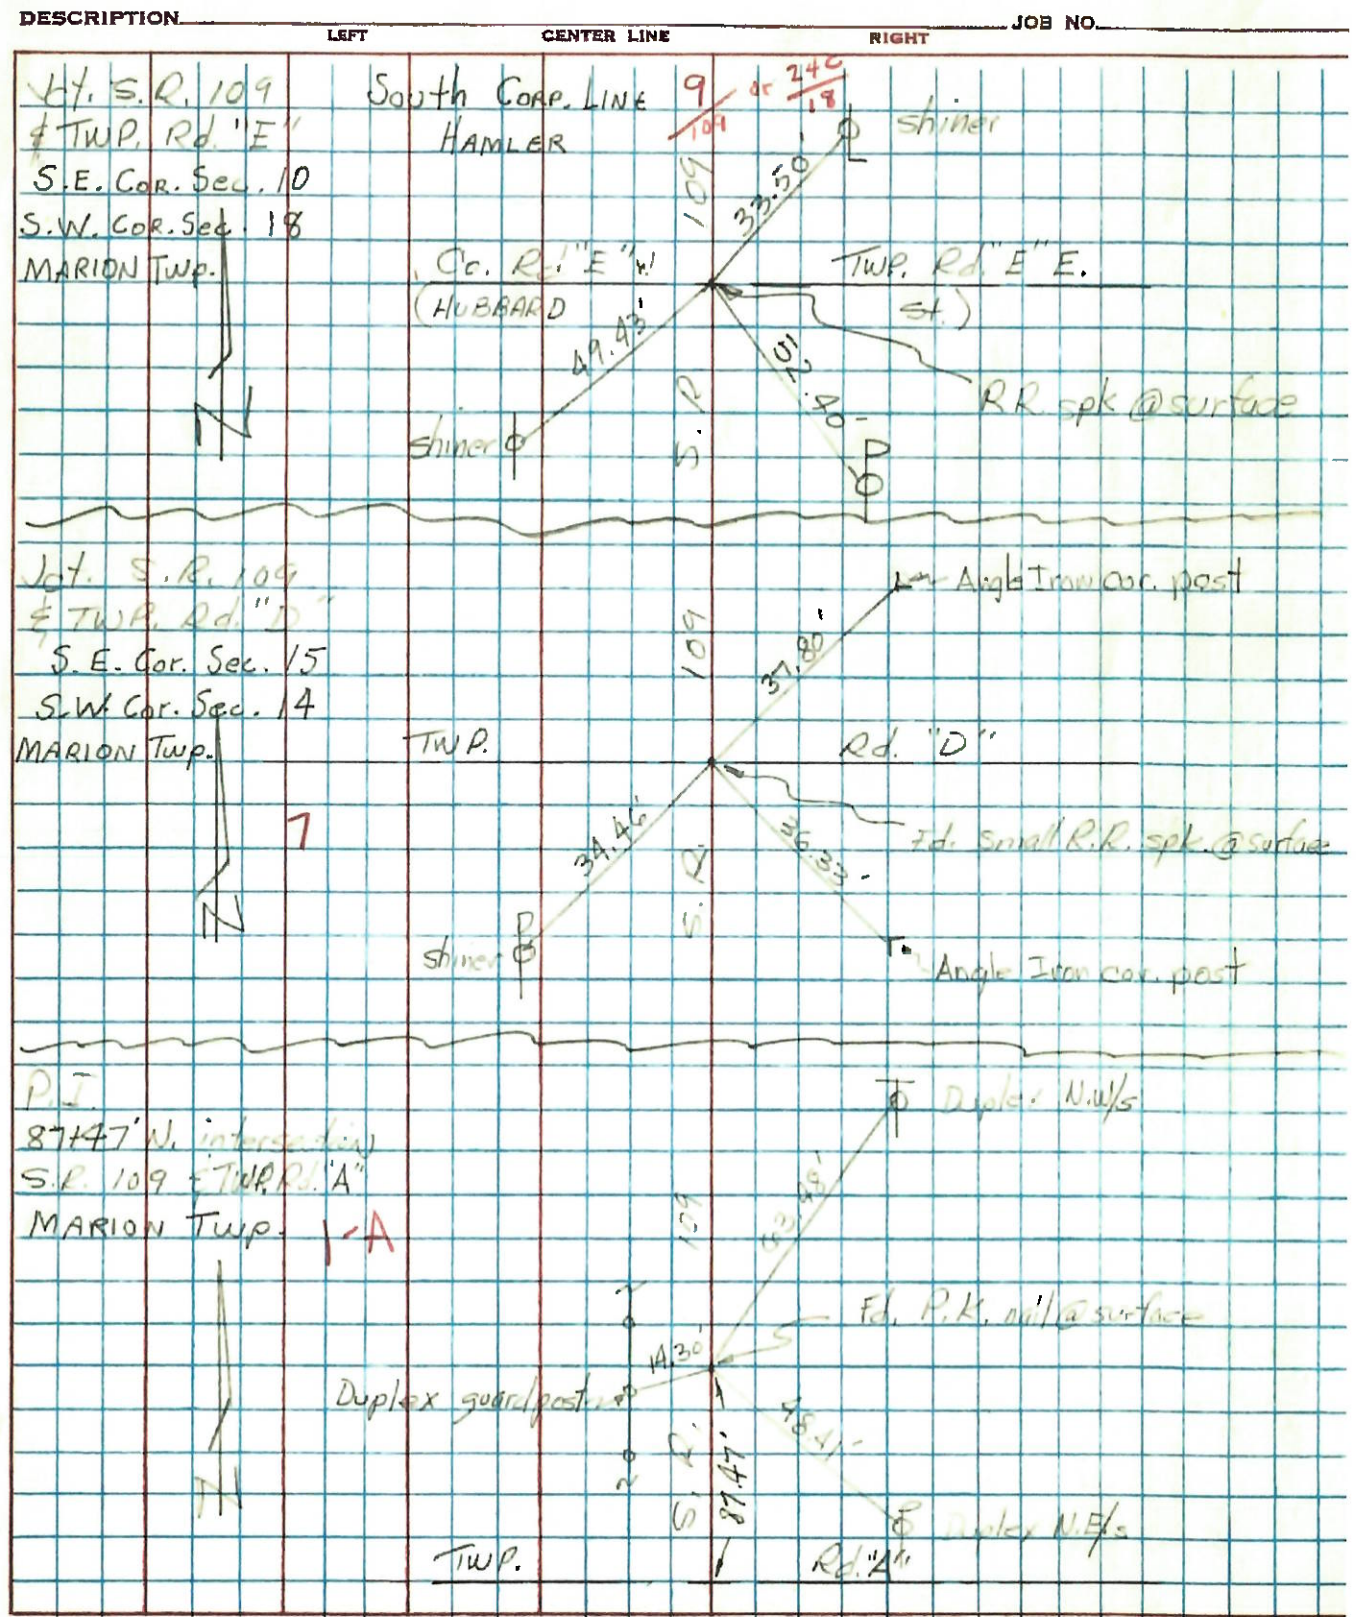 DESCRIPTION JOB NO.
LEFT CENTER LINE RIGHT
Jct. S.R. 109
& TWP. Rd. "E"
S.E. COR. Sec. 10
S.W. COR. Sec. 18
MARION Twp.
N
South CORP. LINE
HAMLER
9/109 or 24C/18
shiner
109
33.50'
Co. Rd. "E" W
(HUBBARD
TWP. Rd. "E" E.
St.)
49.43'
52.40'
S. R.
RR. spk @ surface
shiner
P
Jct. S.R. 109
& TWP. Rd. "D"
S.E. Cor. Sec. 15
S.W. Cor. Sec. 14
MARION Twp.
7
N
Angle Iron cor. post
109
37.80'
TWP. Rd. "D"
34.46'
36.33'
S. R.
Fd. Small R.R. spk. @ surface
P
shiner
Angle Iron cor. post
P.I.
87+47' N. intersection
S.R. 109 & TWP. Rd. "A"
MARION Twp.
1-A
N
Duplex N.W/s
109
63.48'
Fd. P.K. nail @ surface
14.30'
Duplex guardpost
48.41'
S. R.
87.47'
Duplex N.E/s
TWP. Rd. "A"